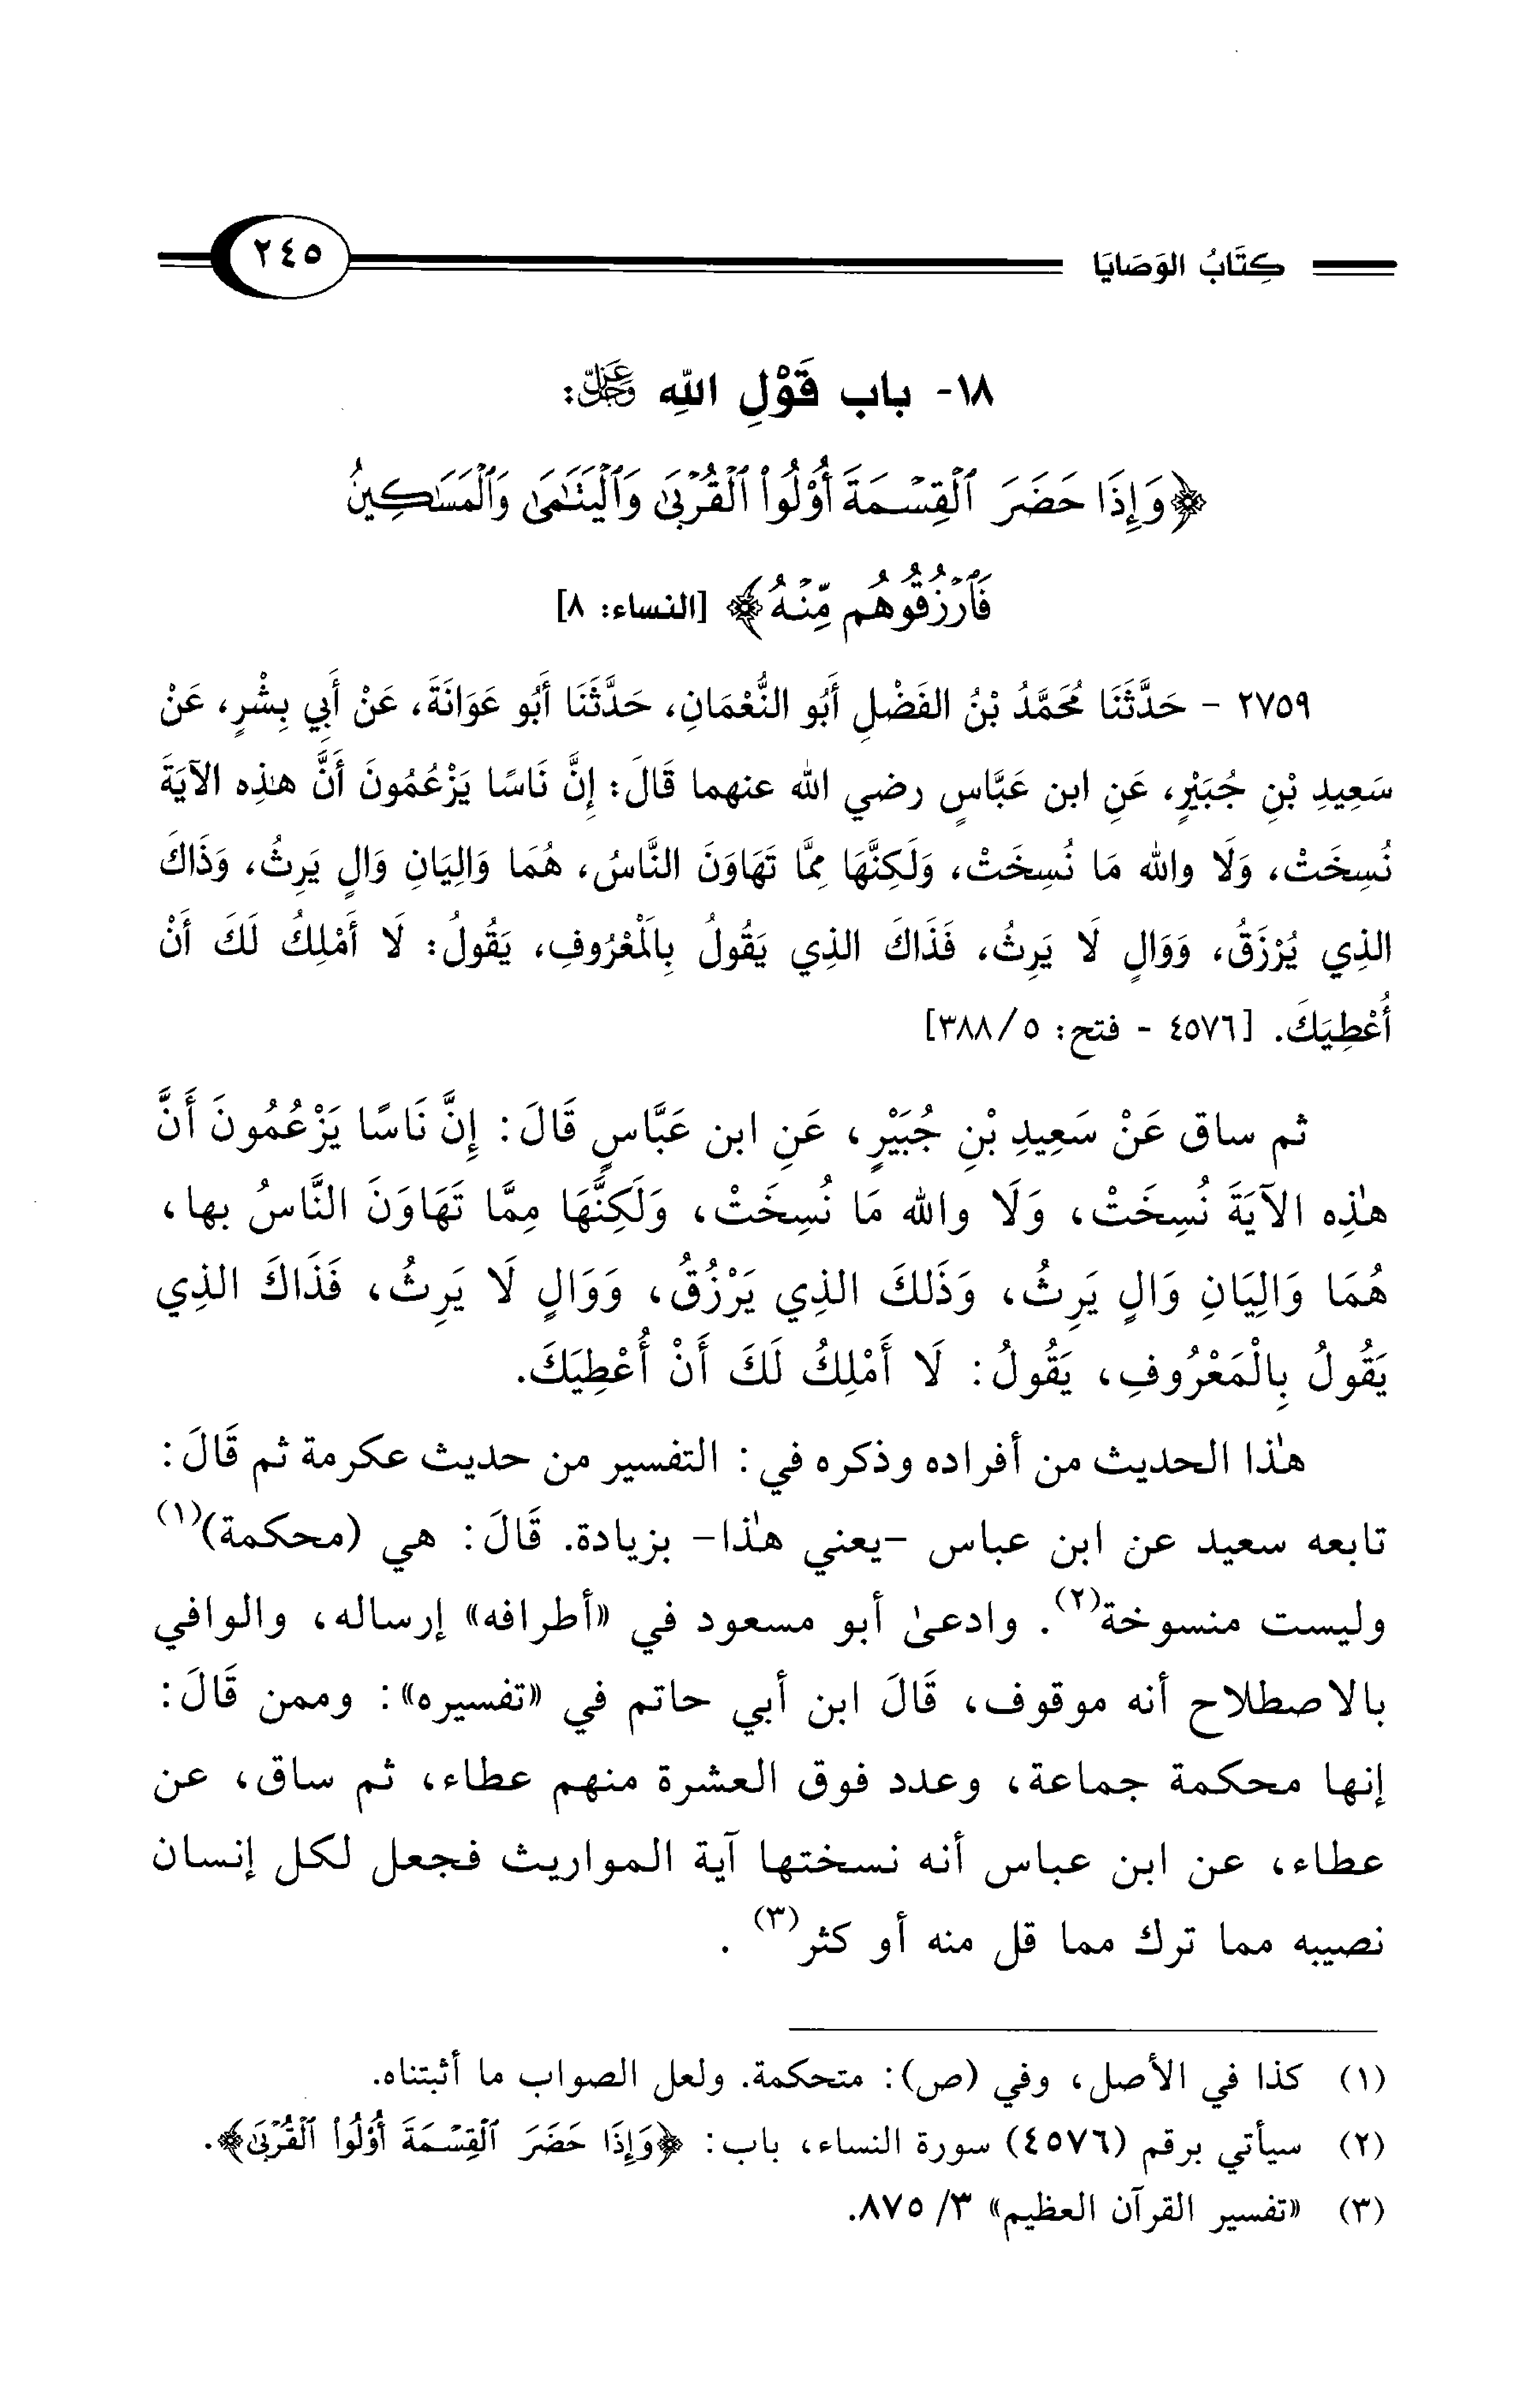 كِتَابُ الوَصَايَا ٢٤٥
١٨- باب قَوْلِ اللهِ عَزَّ وَجَلَّ:
﴿وَإِذَا حَضَرَ ٱلْقِسْمَةَ أُوْلُوا۟ ٱلْقُرْبَىٰ وَٱلْيَتَـٰمَىٰ وَٱلْمَسَـٰكِينُ
فَٱرْزُقُوهُم مِّنْهُ﴾ [النساء: ٨]
٢٧٥٩ - حَدَّثَنَا مُحَمَّدُ بْنُ الفَضْلِ أَبُو النُّعْمَانِ، حَدَّثَنَا أَبُو عَوَانَةَ، عَنْ أَبِي بِشْرٍ، عَنْ
سَعِيدِ بْنِ جُبَيْرٍ، عَنِ ابن عَبَّاسٍ رضي الله عنهما قَالَ: إِنَّ نَاسًا يَزْعُمُونَ أَنَّ هذِه الآيَةَ
نُسِخَتْ، وَلَا والله مَا نُسِخَتْ، وَلَكِنَّهَا مِمَّا تَهَاوَنَ النَّاسُ، هُمَا وَالِيَانِ وَالٍ يَرِثُ، وَذَاكَ
الذِي يُرْزَقُ، وَوَالٍ لَا يَرِثُ، فَذَاكَ الذِي يَقُولُ بِالَمْعْرُوفِ، يَقُولُ: لَا أَمْلِكُ لَكَ أَنْ
أُعْطِيَكَ. [٤٥٧٦ - فتح: ٥/ ٣٨٨]
ثم ساق عَنْ سَعِيدِ بْنِ جُبَيْرٍ، عَنِ ابن عَبَّاسٍ قَالَ: إِنَّ نَاسًا يَزْعُمُونَ أَنَّ
هذِه الآيَةَ نُسِخَتْ، وَلَا والله مَا نُسِخَتْ، وَلَكِنَّهَا مِمَّا تَهَاوَنَ النَّاسُ بها،
هُمَا وَالِيَانِ وَالٍ يَرِثُ، وَذَلكَ الذِي يَرْزُقُ، وَوَالٍ لَا يَرِثُ، فَذَاكَ الذِي
يَقُولُ بِالْمَعْرُوفِ، يَقُولُ: لَا أَمْلِكُ لَكَ أَنْ أُعْطِيَكَ.
هذا الحديث من أفراده وذكره في: التفسير من حديث عكرمة ثم قَالَ:
تابعه سعيد عن ابن عباس -يعني هذا- بزيادة. قَالَ: هي (محكمة)(١)
وليست منسوخة(٢). وادعىٰ أبو مسعود في «أطرافه» إرساله، والوافي
بالاصطلاح أنه موقوف، قَالَ ابن أبي حاتم في «تفسيره»: وممن قَالَ:
إنها محكمة جماعة، وعدد فوق العشرة منهم عطاء، ثم ساق، عن
عطاء، عن ابن عباس أنه نسختها آية المواريث فجعل لكل إنسان
نصيبه مما ترك مما قل منه أو كثر(٣).
(١) كذا في الأصل، وفي (ص): متحكمة. ولعل الصواب ما أثبتناه.
(٢) سيأتي برقم (٤٥٧٦) سورة النساء، باب: ﴿وَإِذَا حَضَرَ ٱلْقِسْمَةَ أُوْلُوا۟ ٱلْقُرْبَىٰ﴾.
(٣) «تفسير القرآن العظيم» ٣/ ٨٧٥.